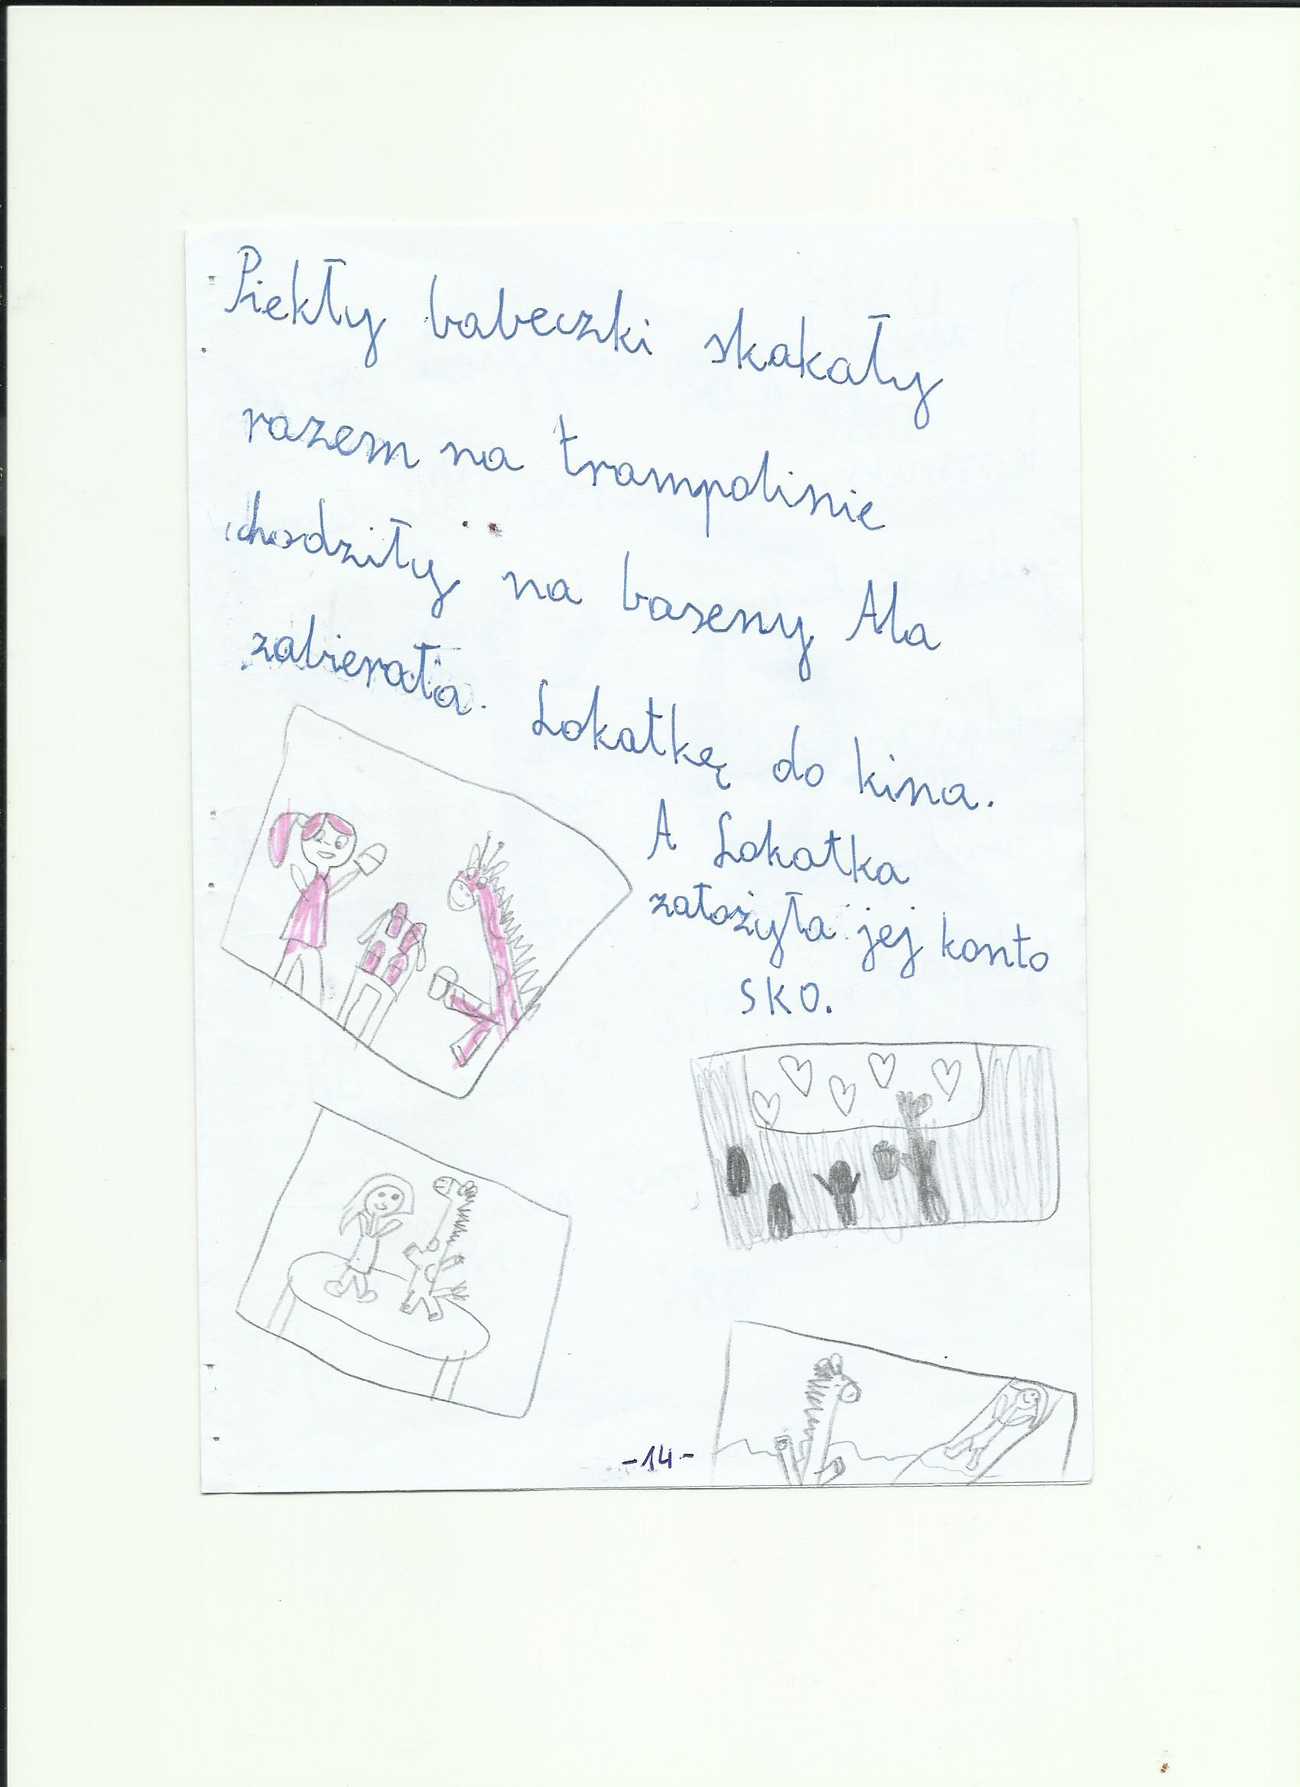 Piekły babeczki skakały
razem na trampolinie
chodziły na baseny Ala
zabierała. Lokatkę do kina.
A Lokatka
założyła jej konto
SKO.
-14-